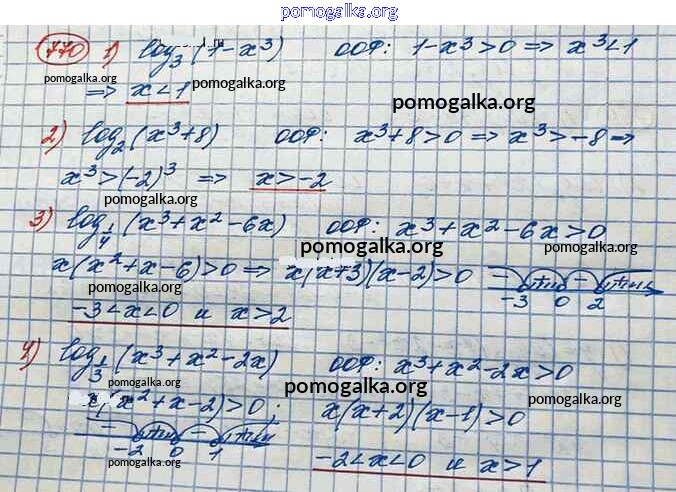 pomogalka.org
770 1) log₃(1-x³) ООФ: 1-x³>0 => x³<1
pomogalka.org pomogalka.org
=> x<1 pomogalka.org
2) log₂(x³+8) ООФ: x³+8>0 => x³>-8 =>
x³>(-2)³ => x>-2
pomogalka.org
3) log₁/₄(x³+x²-6x) ООФ: x³+x²-6x>0
pomogalka.org pomogalka.org
x(x²+x-6)>0 => x(x+3)(x-2)>0 - + - +
pomogalka.org -3 0 2
-3<x<0 и x>2 pomogalka.org
4) log₁/₃(x³+x²-2x) ООФ: x³+x²-2x>0
pomogalka.org pomogalka.org pomogalka.org
x(x²+x-2)>0; x(x+2)(x-1)>0
- + - +
-2 0 1 -2<x<0 и x>1
pomogalka.org pomogalka.org